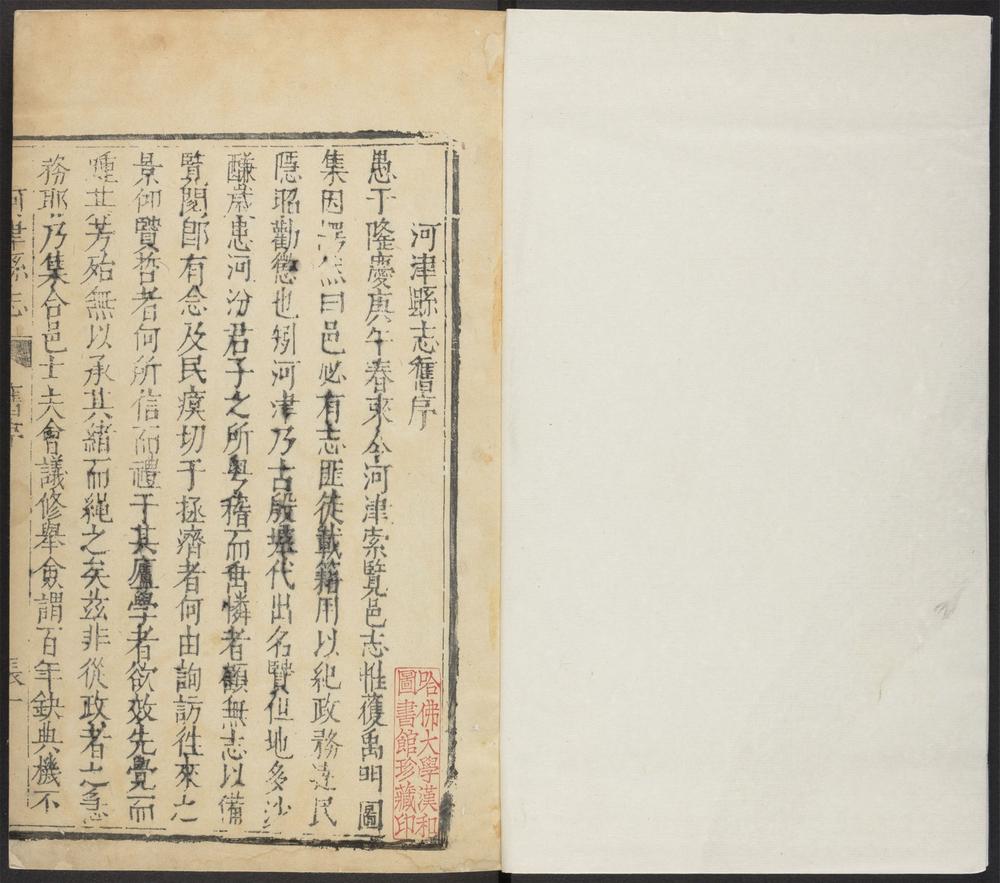 河津縣志舊序
愚于隆慶庚午春來令河津索覽邑志惟獲禹門圖
集因愕然曰邑必有志匪徒載籍用以紀政務達民
隱昭勸懲也矧河津乃古殷墟代出名賢但地多沙
鹻歲患河汾君子之所粤稽而垂憐者顧無志以備
覽閱即有念及民瘼切于拯濟者何由詢訪往來之
景仰賢哲者何所信而禮于其廬學者欲效先覺而
踵其芳殆無以承其緒而繩之矣茲非從政者之急
務耶乃集合邑士夫會議修舉僉謂百年缺典機不
河津縣志
舊序
哈佛大學漢和
圖書館珍藏印